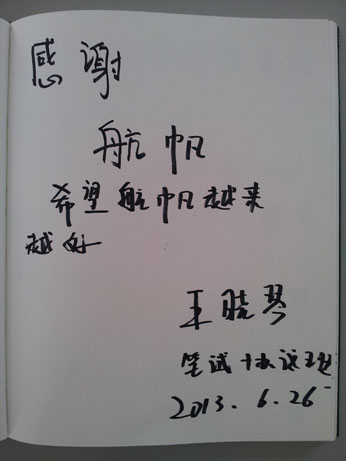 感谢
航帆
希望航帆越来
越好
王晓琴
笔试+协议王冠
2013.6.26